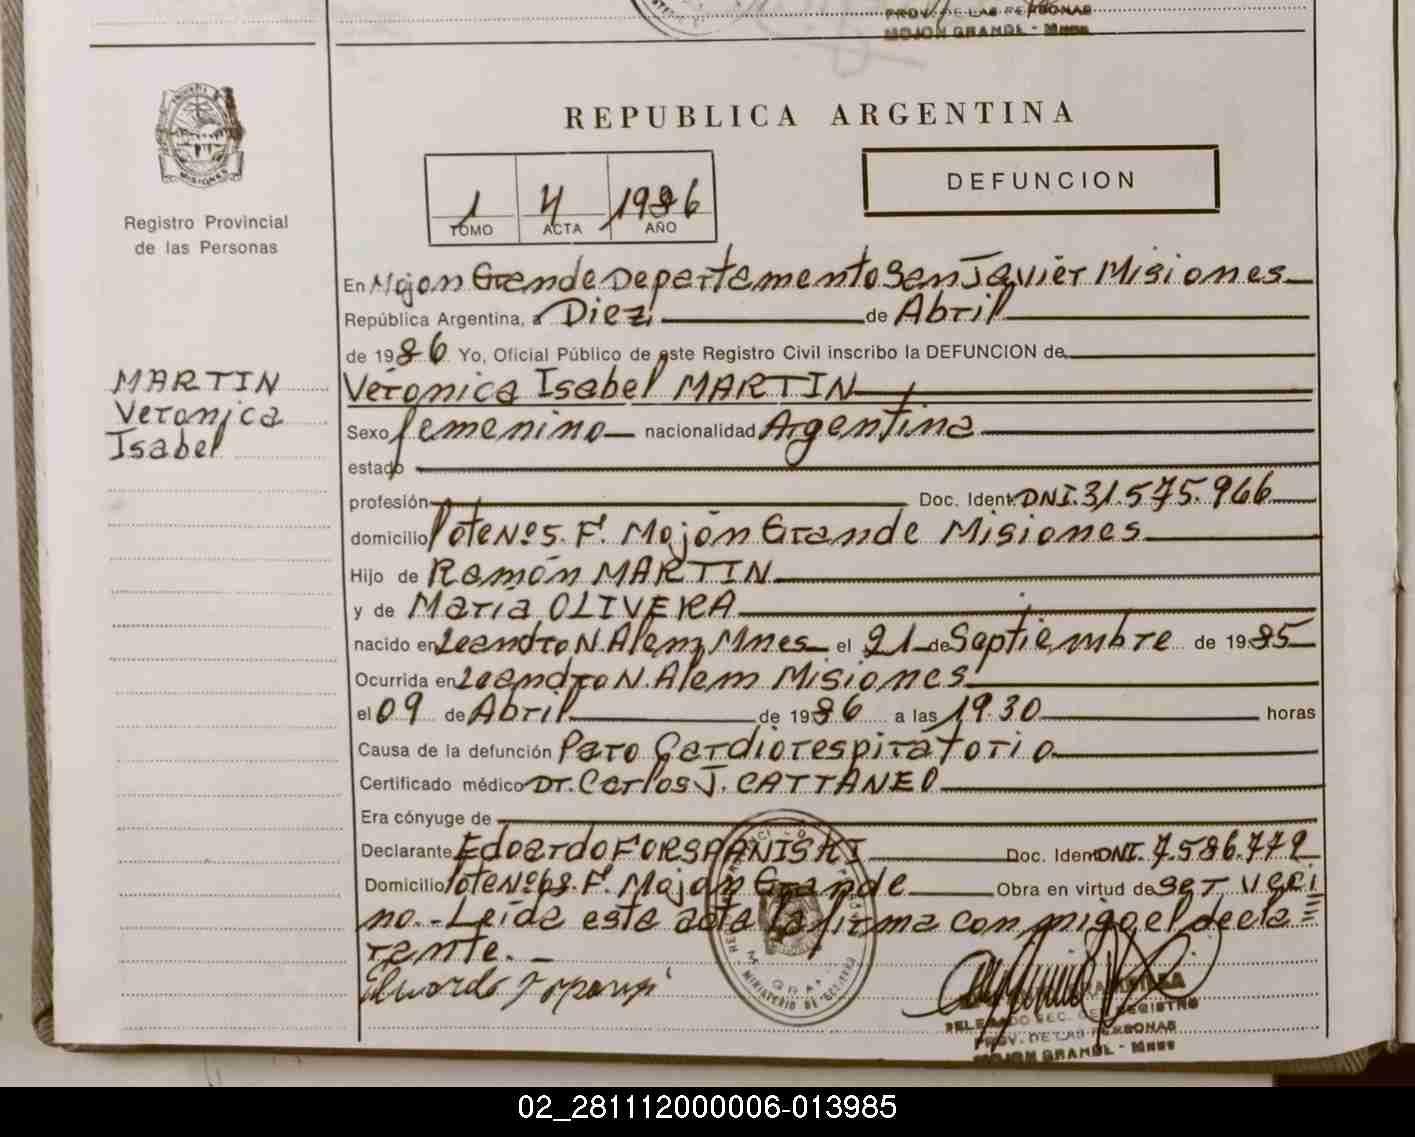 PROV. DE LAS PERSONAS
MOJON GRANDE - Mnes
REPUBLICA ARGENTINA
DEFUNCION
1 4 1986
TOMO ACTA AÑO
MISIONES
Registro Provincial
de las Personas
MARTIN
Veronica
Isabel
En Mojon Grande Departamento San Javier Misiones
República Argentina, a Diez de Abril
de 1986 Yo, Oficial Público de este Registro Civil inscribo la DEFUNCION de
Veronica Isabel MARTIN
Sexo femenino nacionalidad Argentina
estado
profesión Doc. Ident. DNI. 31.575.966
domicilio lote Nº 5. F. Mojón Grande Misiones
Hijo de Ramón MARTIN
y de María OLIVERA
nacido en Leandro N. Alem, Mnes el 21 de Septiembre de 1985
Ocurrida en Leandro N. Alem Misiones
el 09 de Abril de 1986 a las 19.30 horas
Causa de la defunción Paro Cardiorespiratorio
Certificado médico Dr. Carlos J. CATTANEO
Era cónyuge de
Declarante Edoardo FORSPANISKI Doc. Ident. DNI. 7.586.772
Domicilio lote Nº 68. F. Mojón Grande Obra en virtud de ser veci
no.- Leida esta acta la firma con migo el decla
rante.-
DELEGADO SEC. DEL REGISTRO
PROV. DE LAS PERSONAS
MOJON GRANDE - Mnes
MINISTERIO DE GOBIERNO
02_281112000006-013985